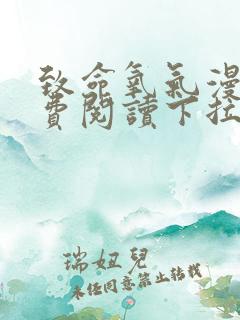 致命氧氣漫
費閱讀下拉
瑞妞兒
未经同意禁止转载